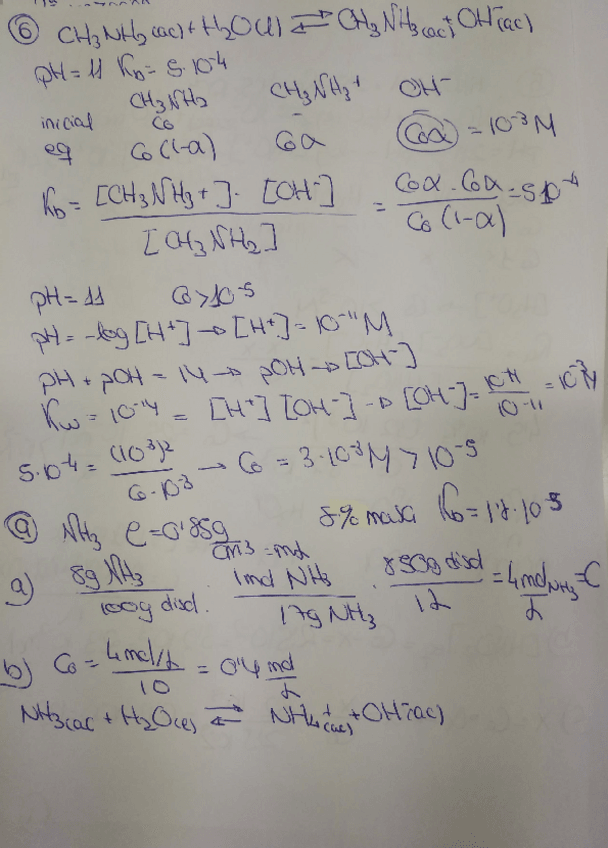 ⑥ CH3NH2(ac) + H2O(l) ⇌ CH3NH3(ac)+ + OH-(ac)
pH = 11 Kb = 5·10-4
CH3NH2 CH3NH3+ OH-
inicial Co -
eq Co(1-α) Coα Coα = 10-3 M
Kb = [CH3NH3+]· [OH-] / [CH3NH2] = Coα · Coα / Co (1-α) = 5·10-4
pH = 11 Co > 10-5
pH = -log [H+] → [H+] = 10-11 M
pH + pOH = 14 → pOH → [OH-]
Kw = 10-14 = [H+] [OH-] → [OH-] = 10-14 / 10-11 = 10-3 M
5·10-4 = (10-3)2 / Co-10-3 → Co = 3·10-3 M > 10-5
⑨ NH3 ρ = 0'85 g/cm3 = ml 8% masa Kb = 1'8·10-5
a) 8g NH3 / 100g disol. · 1mol NH3 / 17g NH3 · 850g disol / 1L = 4 mol NH3 / L = C
b) Co = 4mol/L / 10 = 0'4 mol/L
NH3(ac) + H2O(l) ⇌ NH4+(ac) + OH-(ac)